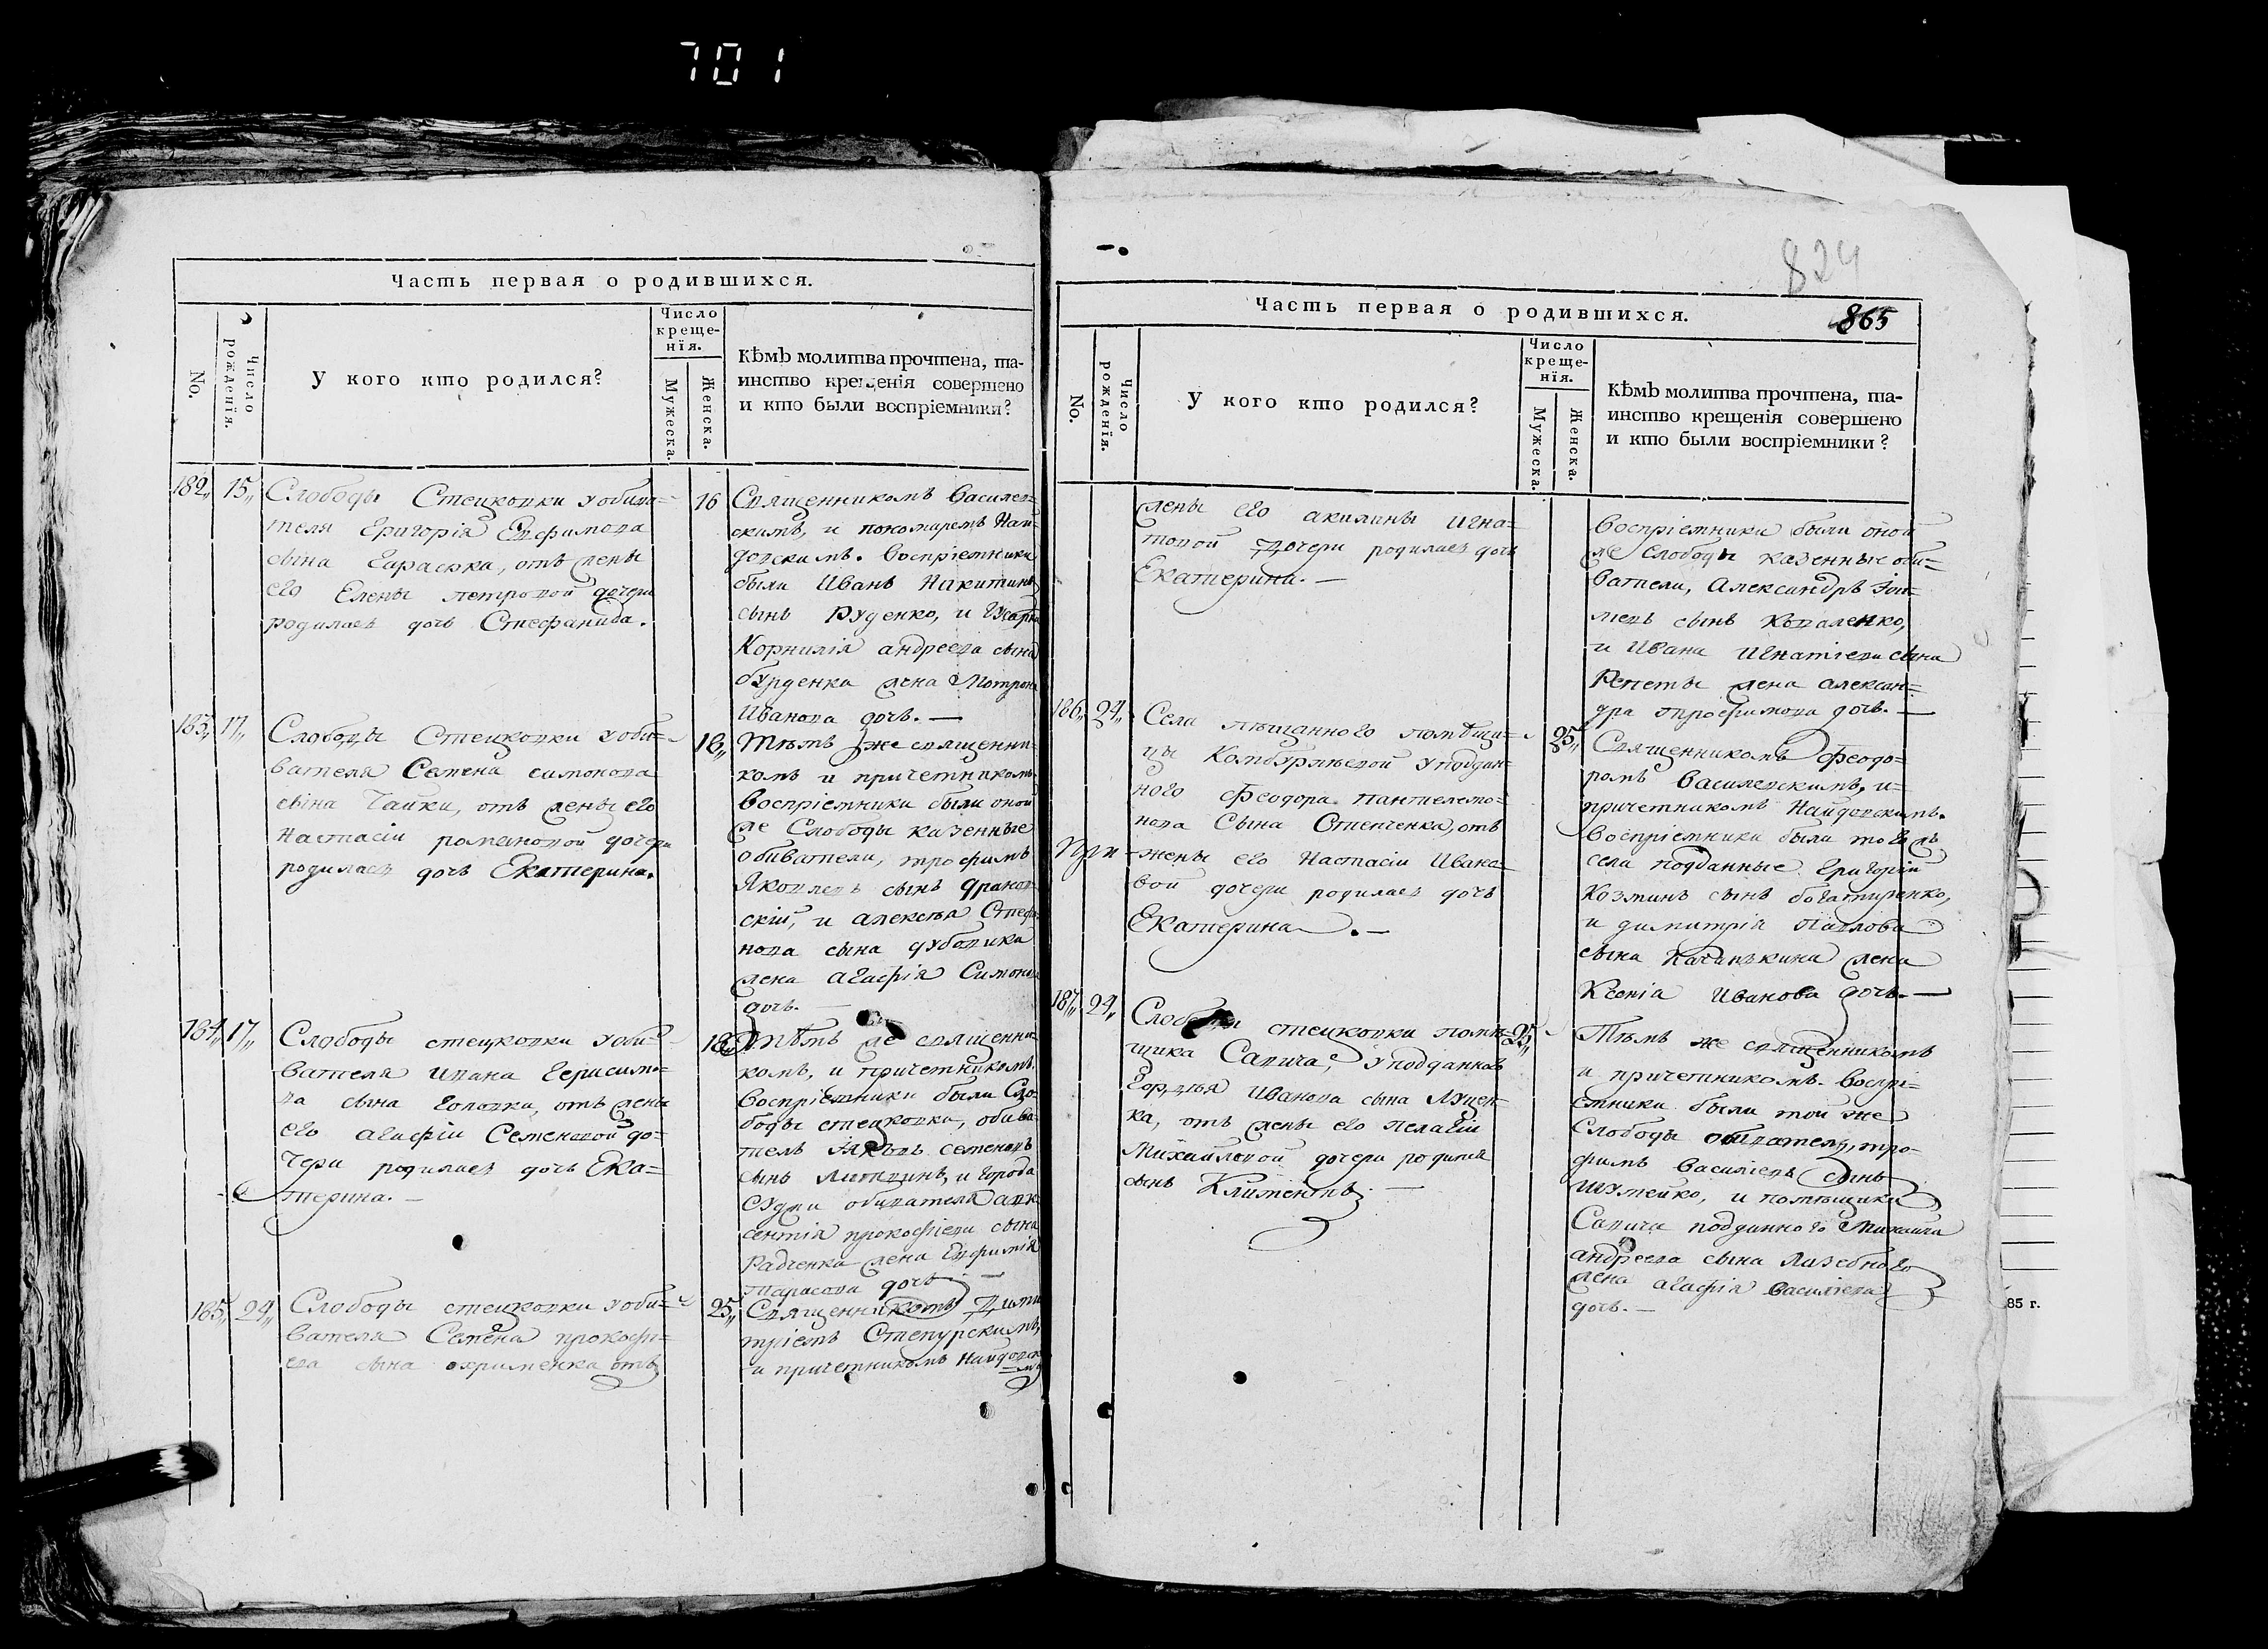 701
Часть первая о родившихся.
No.
Число рожденїя.
У кого кто родился?
Число
креще-
нїя.
Мужеска.
Женска.
Кѣмъ молитва прочтена, та-
инство крещенїя совершено
и кто были воспрїемники?
182,, 15,, Слободы Стецковки у обива-
теля Григорія Евфимова
сына Гараська, отъ жены
его Елены петровой дочери
родилась дочь Стефанида.
16 Священникомъ Василев-
скимъ, и пономаремъ Най-
довскимъ. Воспріемники
были Иванъ Никитинъ
сынъ Руденко, и
Корнилія андреева сына
бурденка жена Мотрона
Иванова дочь. —
183,, 17,, Слободы Стецковки у оби-
вателя Семена симонова
сына Чайки, отъ жены его
Настасіи романовой дочери
родилась дочь Екатерина.
18,, Тѣмъ же священни-
комъ и причетникомъ.
Воспріемники были оной
же Слободы казенные
обиватели, трофимъ
Яковлевъ сынъ
скій, и алексѣя Стефа-
нова сына дубовика
жена агафія Симонова
дочь. —
184,, 17,, Слободы стецковки у оби-
вателя ивана Герасимо-
ва сына головки, отъ жены
его агафіи Семеновой до-
чери родилась дочь Ека-
терина. —
18,, Тѣмъ же священни-
комъ, и причетникомъ.
Воспріемники были Сло-
боды стецковки, обива-
тель Яковъ семеновъ
сынъ Литвинъ, и города
Сумъ обивателя авк-
сентія прокофіева сына
Радченка жена Евфимія
Тарасова дочь —
185,, 24,, Слободы стецковки у оби-
вателя Семена прокофи-
ева сына охрименка отъ
25,, Священникомъ Дими-
тріемъ Степурскимъ,
и причетникомъ Найдовск-
имъ
824
Часть первая о родившихся.
865
No.
Число рожденїя.
У кого кто родился?
Число
креще-
нїя.
Мужеска.
Женска.
Кѣмъ молитва прочтена, та-
инство крещенїя совершено
и кто были воспрїемники?
жены его акилины игна-
товой дочери родилась дочь
Екатерина. —
Воспріемники были оной
же Слободы казенные оби-
ватели, Александръ
сынъ Коваленко,
и Ивана Игнатіева сына
Репеты жена алексан-
дра трофимова дочь. —
186,, 24,, Села пѣщанного помѣщи-
цы Комбурлѣевой у поддан-
ного Феодора пантелемо-
нова Сына Степченка, отъ
жены его Настасіи Ивано-
вой дочери родилась дочь
Екатерина. —
25,, Священникомъ Феодо-
ромъ Василевскимъ, и
причетникомъ Найдовскимъ.
Воспріемники были того жъ
села подданные Григорій
Козминъ сынъ богатиренко,
и димитрія Павлова
сына жена
Ксенія Иванова дочь. —
187,, 24,, Слободы стецковки помѣ-
щика Савича, у подданного
Гордѣя Иванова сына Луцен-
ка, отъ жены его пелагіи
Михайловой дочери родился
сынъ Климентъ. —
25,, Тѣмъ же священникомъ
и причетникомъ. Воспрі-
емники были той же
Слободы обиватель, тро-
фимъ Василіевъ Сынъ
Шумейко, и помѣщика
Савича подданного Михаила
андреева сына Лазебного
жена агафія Василіева
дочь. —
85 г.